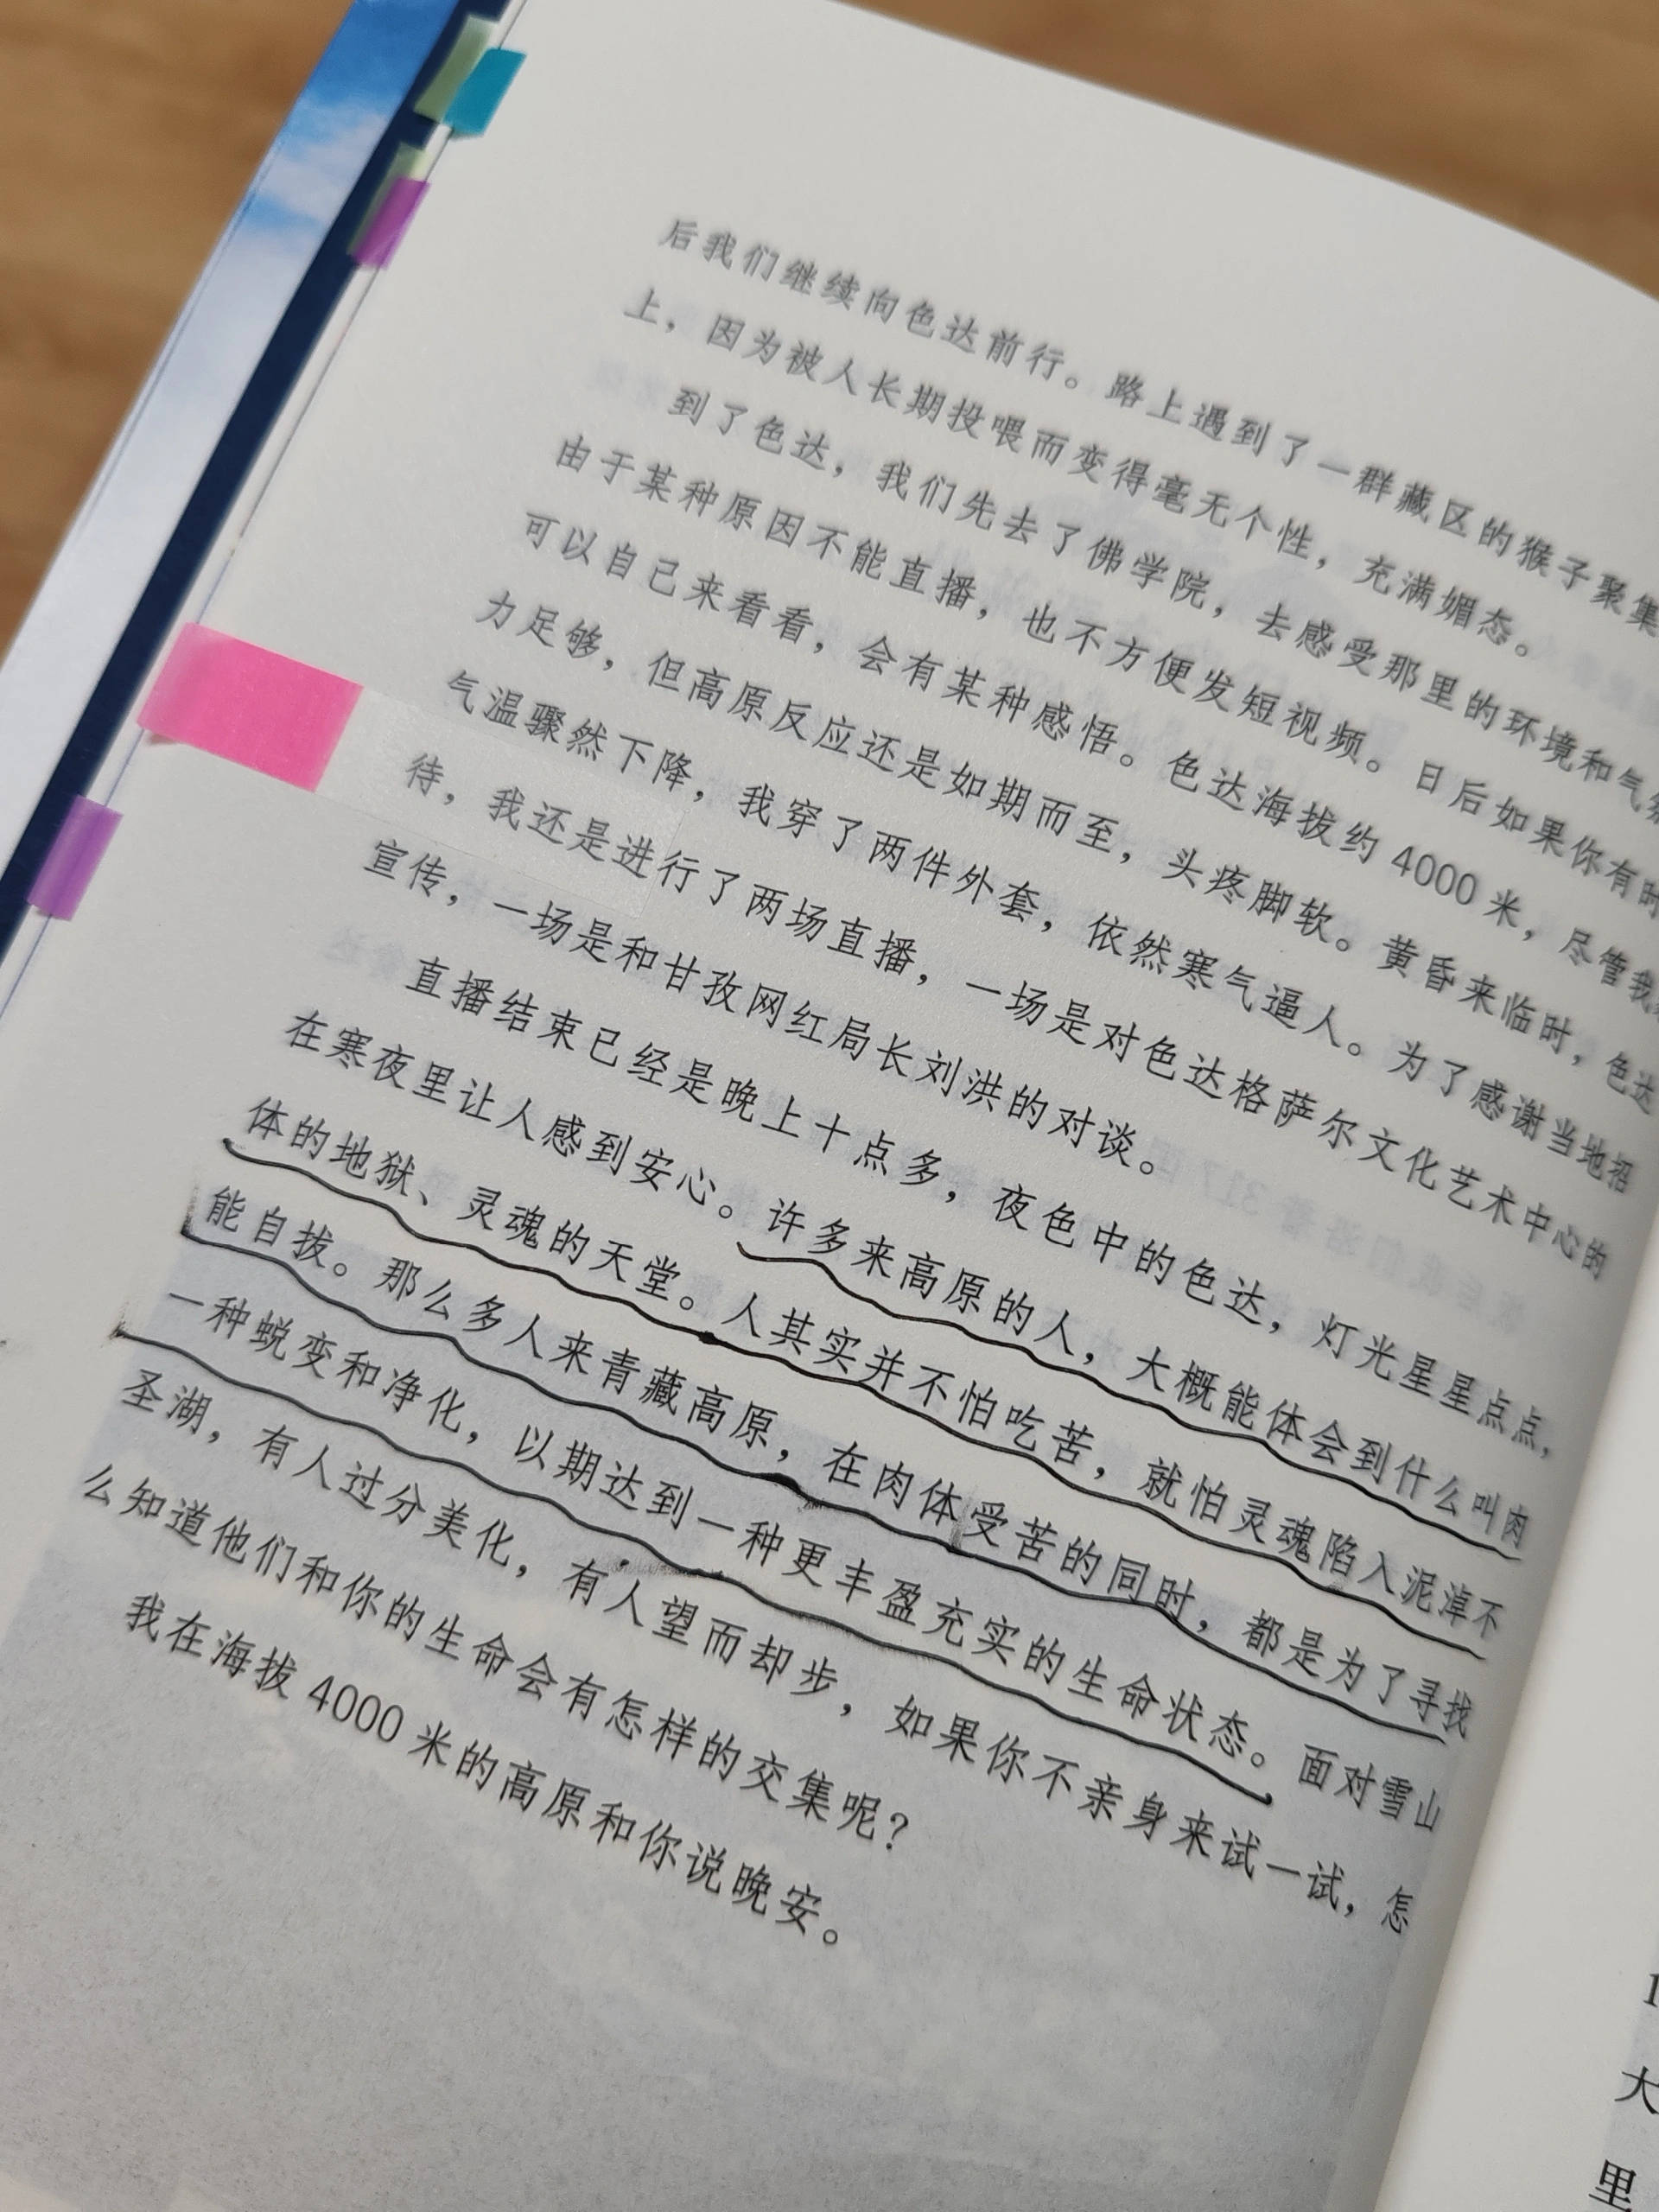 后我们继续向色达前行。路上遇到了一群藏区的猴子聚集
上，因为被人长期投喂而变得毫无个性，充满媚态。
到了色达，我们先去了佛学院，去感受那里的环境和气
由于某种原因不能直播，也不方便发短视频。日后如果你有时
可以自己来看看，会有某种感悟。色达海拔约4000米，尽管我
力足够，但高原反应还是如期而至，头疼脚软。黄昏来临时，色达
气温骤然下降，我穿了两件外套，依然寒气逼人。为了感谢当地招
待，我还是进行了两场直播，一场是对色达格萨尔文化艺术中心的
宣传，一场是和甘孜网红局长刘洪的对谈。
直播结束已经是晚上十点多，夜色中的色达，灯光星星点点，
在寒夜里让人感到安心。许多来高原的人，大概能体会到什么叫肉
体的地狱、灵魂的天堂。人其实并不怕吃苦，就怕灵魂陷入泥淖不
能自拔。那么多人来青藏高原，在肉体受苦的同时，都是为了寻找
一种蜕变和净化，以期达到一种更丰盈充实的生命状态。面对雪山
圣湖，有人过分美化，有人望而却步，如果你不亲身来试一试，怎
么知道他们和你的生命会有怎样的交集呢？
我在海拔4000米的高原和你说晚安。
大
里